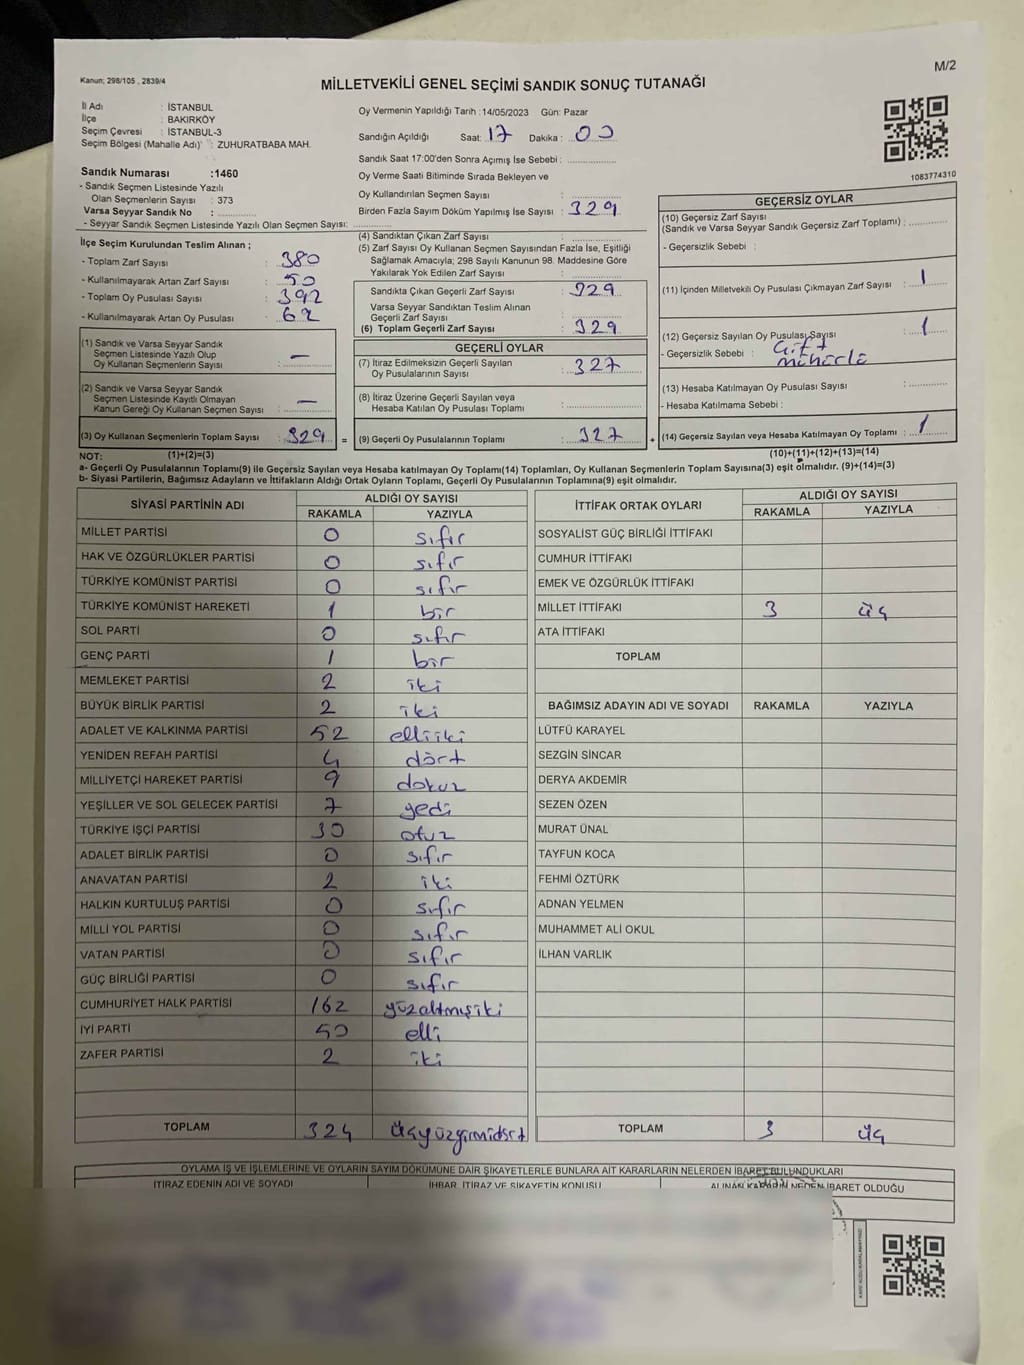 M/2
Kanun; 298/105 , 2839/4
MİLLETVEKİLİ GENEL SEÇİMİ SANDIK SONUÇ TUTANAĞI
İl Adı : İSTANBUL
İlçe : BAKIRKÖY
Seçim Çevresi : İSTANBUL-3
Seçim Bölgesi (Mahalle Adı) : ZUHURATBABA MAH.
Sandık Numarası :1460
- Sandık Seçmen Listesinde Yazılı
Olan Seçmenlerin Sayısı : 373
Varsa Seyyar Sandık No :
- Seyyar Sandık Seçmen Listesinde Yazılı Olan Seçmen Sayısı:
Oy Vermenin Yapıldığı Tarih :14/05/2023 Gün: Pazar
Sandığın Açıldığı Saat: 17 Dakika : 00
Sandık Saat 17:00'den Sonra Açımış İse Sebebi :
Oy Verme Saati Bitiminde Sırada Bekleyen ve
Oy Kullandırılan Seçmen Sayısı :
Birden Fazla Sayım Döküm Yapılmış İse Sayısı : 329
1083774310
İlçe Seçim Kurulundan Teslim Alınan ;
- Toplam Zarf Sayısı : 380
- Kullanılmayarak Artan Zarf Sayısı : 50
- Toplam Oy Pusulası Sayısı : 392
- Kullanılmayarak Artan Oy Pusulası : 62
(1) Sandık ve Varsa Seyyar Sandık
Seçmen Listesinde Yazılı Olup
Oy Kullanan Seçmenlerin Sayısı : —
(2) Sandık ve Varsa Seyyar Sandık
Seçmen Listesinde Kayıtlı Olmayan
Kanun Gereği Oy Kullanan Seçmen Sayısı : —
(3) Oy Kullanan Seçmenlerin Toplam Sayısı : 329 =
(4) Sandıktan Çıkan Zarf Sayısı :
(5) Zarf Sayısı Oy Kullanan Seçmen Sayısından Fazla İse, Eşitliği
Sağlamak Amacıyla; 298 Sayılı Kanunun 98. Maddesine Göre
Yakılarak Yok Edilen Zarf Sayısı :
Sandıkta Çıkan Geçerli Zarf Sayısı : 329
Varsa Seyyar Sandıktan Teslim Alınan
Geçerli Zarf Sayısı :
(6) Toplam Geçerli Zarf Sayısı : 329
GEÇERLİ OYLAR
(7) İtiraz Edilmeksizin Geçerli Sayılan
Oy Pusulalarının Sayısı : 327
(8) İtiraz Üzerine Geçerli Sayılan veya
Hesaba Katılan Oy Pusulası Toplamı :
(9) Geçerli Oy Pusulalarının Toplamı : 327 +
GEÇERSİZ OYLAR
(10) Geçersiz Zarf Sayısı
(Sandık ve Varsa Seyyar Sandık Geçersiz Zarf Toplamı) :
- Geçersizlik Sebebi :
(11) İçinden Milletvekili Oy Pusulası Çıkmayan Zarf Sayısı : 1
(12) Geçersiz Sayılan Oy Pusulası Sayısı : 1
- Geçersizlik Sebebi : Çift
mühürlü
(13) Hesaba Katılmayan Oy Pusulası Sayısı :
- Hesaba Katılmama Sebebi :
(14) Geçersiz Sayılan veya Hesaba Katılmayan Oy Toplamı : 1
NOT: (1)+(2)=(3)
(10)+(11)+(12)+(13)=(14)
a- Geçerli Oy Pusulalarının Toplamı(9) ile Geçersiz Sayılan veya Hesaba katılmayan Oy Toplamı(14) Toplamları, Oy Kullanan Seçmenlerin Toplam Sayısına(3) eşit olmalıdır. (9)+(14)=(3)
b- Siyasi Partilerin, Bağımsız Adayların ve İttifakların Aldığı Ortak Oyların Toplamı, Geçerli Oy Pusulalarının Toplamına(9) eşit olmalıdır.
SİYASİ PARTİNİN ADI ALDIĞI OY SAYISI
RAKAMLA YAZIYLA
MİLLET PARTİSİ 0 sıfır
HAK VE ÖZGÜRLÜKLER PARTİSİ 0 sıfır
TÜRKİYE KOMÜNİST PARTİSİ 0 sıfır
TÜRKİYE KOMÜNİST HAREKETİ 1 bir
SOL PARTİ 0 sıfır
GENÇ PARTİ 1 bir
MEMLEKET PARTİSİ 2 iki
BÜYÜK BİRLİK PARTİSİ 2 iki
ADALET VE KALKINMA PARTİSİ 52 elliiki
YENİDEN REFAH PARTİSİ 4 dört
MİLLİYETÇİ HAREKET PARTİSİ 9 dokuz
YEŞİLLER VE SOL GELECEK PARTİSİ 7 yedi
TÜRKİYE İŞÇİ PARTİSİ 30 otuz
ADALET BİRLİK PARTİSİ 0 sıfır
ANAVATAN PARTİSİ 2 iki
HALKIN KURTULUŞ PARTİSİ 0 sıfır
MİLLİ YOL PARTİSİ 0 sıfır
VATAN PARTİSİ 0 sıfır
GÜÇ BİRLİĞİ PARTİSİ 0 sıfır
CUMHURİYET HALK PARTİSİ 162 yüzaltmışiki
İYİ PARTİ 50 elli
ZAFER PARTİSİ 2 iki
TOPLAM 324 üçyüzyirmidört
İTTİFAK ORTAK OYLARI ALDIĞI OY SAYISI
RAKAMLA YAZIYLA
SOSYALİST GÜÇ BİRLİĞİ İTTİFAKI
CUMHUR İTTİFAKI
EMEK VE ÖZGÜRLÜK İTTİFAKI
MİLLET İTTİFAKI 3 üç
ATA İTTİFAKI
TOPLAM
BAĞIMSIZ ADAYIN ADI VE SOYADI RAKAMLA YAZIYLA
LÜTFÜ KARAYEL
SEZGİN SİNCAR
DERYA AKDEMİR
SEZEN ÖZEN
MURAT ÜNAL
TAYFUN KOCA
FEHMİ ÖZTÜRK
ADNAN YELMEN
MUHAMMET ALİ OKUL
İLHAN VARLIK
TOPLAM 3 üç
OYLAMA İŞ VE İŞLEMLERİNE VE OYLARIN SAYIM DÖKÜMÜNE DAİR ŞİKAYETLERLE BUNLARA AİT KARARLARIN NELERDEN İBARET BULUNDUKLARI
İTİRAZ EDENİN ADI VE SOYADI İHBAR, İTİRAZ VE ŞİKAYETİN KONUSU ALINAN KARARIN NEDEN İBARET OLDUĞU